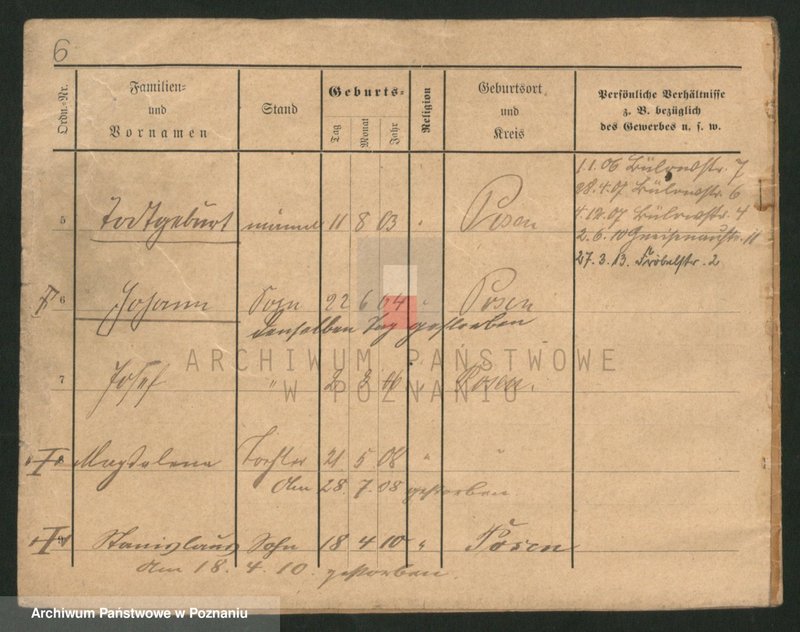 6
Ordn.-Nr.
Familien- und Vornamen
Stand
Geburts-
Tag
Monat
Jahr
Religion
Geburtsort und Kreis
Persönliche Verhältnisse
z. B. bezüglich
des Gewerbes u. s. w.
1.1.06 Bülowstr. 7
28.4.07 Bülowstr. 6
4.12.07 Bülowstr. 4
2.6.10 Gneisenaustr. 11
27.3.13. Fröbelstr. 2
5 Todtgeburt männl 11 8 03 " Posen
6 Johann Sohn 22 6 04 " Posen
denselben Tag gestorben
7 Josef " 2 3 06 " Posen.
Magdalena Tochter 21 5 08 " "
Am 28. 7. 08 gestorben.
Stanislaus Sohn 18 4 10 " Posen
Am 18. 4. 10. gestorben.
ARCHIWUM PAŃSTWOWE
W POZNANIU
Archiwum Państwowe w Poznaniu